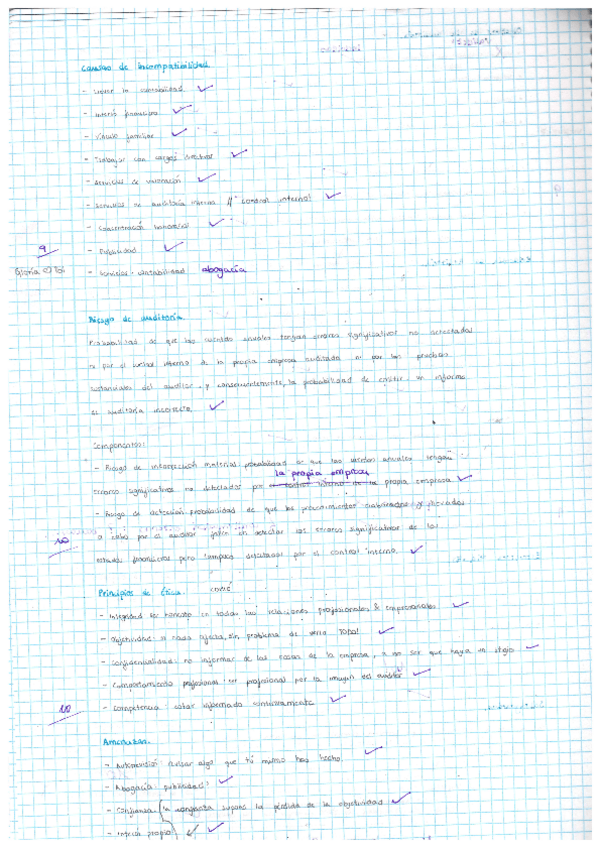 Causas de Incompatibilidad
- Llevar la contabilidad
- Interés financiero
- Vínculo familiar
- Trabajar con cargos directivos
- Servicios de valoración
- Servicios de auditoría interna // control interno!
- Concentración honorarios
9
- Publicidad
- Servicios contabilidad abogacía
Riesgo de auditoría.
Probabilidad de que las cuentas anuales tengan errores significativos no detectados
ni por el control interno de la propia empresa auditada ni por las pruebas
sustantivas del auditor, y consecuentemente, la probabilidad de emitir un informe
de auditoría incorrecto.
Componentes:
- Riesgo de incorrección material: probabilidad de que las cuentas anuales tengan
la propia empresa
errores significativos no detectados por el control interno de la propia empresa
- Riesgo de detección: probabilidad de que los procedimientos
10
a cabo por el auditor fallen en detectar los errores significativos de los
estados financieros pero tampoco detectados por el control interno.
Principios de Ética.
- Integridad: ser honesto en todas las relaciones profesionales & empresariales
- Objetividad: si nada afecta, sin problema de
- Confidencialidad: no informar de las cosas de la empresa, a no ser que haya un
- Comportamiento profesional: ser profesional por la imagen del auditor
10
- Competencia: estar informado continuamente
Amenazas.
- Autorrevisión: revisar algo que tú mismo has hecho.
- Abogacía: publicidad
- Confianza: la supone la pérdida de la objetividad
- Interés propio